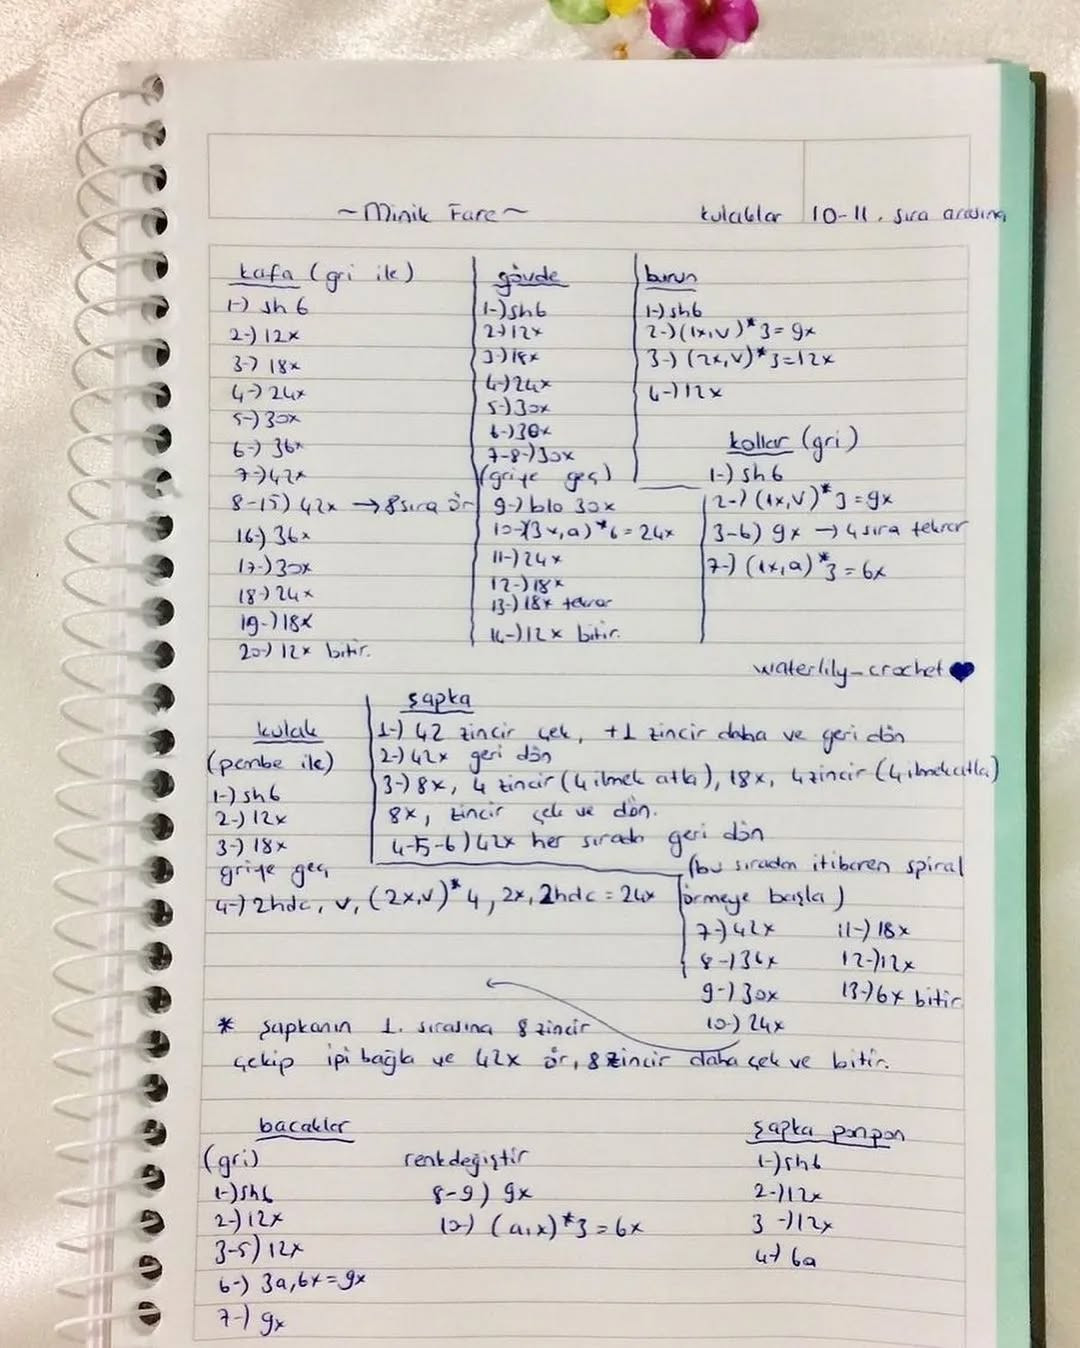 ~Minik Fare~
kulaklar 10-11. sıra arasına
kafa (gri ile)
1-) sh 6
2-) 12x
3-) 18x
4-) 24x
5-) 30x
6-) 36x
7-) 42x
8-15) 42x → 8 sıra ör
16-) 36x
17-) 30x
18-) 24x
19-) 18x
20-) 12x bitir.
gövde
1-) sh6
2-) 12x
3-) 18x
4-) 24x
5-) 30x
6-) 30x
7-8-) 30x
(griye geç)
9-) blo 30x
10-) (3x,a)*6 = 24x
11-) 24x
12-) 18x
13-) 18x tekrar
14-) 12x bitir.
burun
1-) sh6
2-) (1x,v)*3= 9x
3-) (2x,v)*3=12x
4-) 12x
kollar (gri)
1-) sh6
2-) (1x,v)*3 = 9x
3-6) 9x → 4 sıra tekrar
7-) (1x,a)*3 = 6x
waterlily_crochet
kulak
(pembe ile)
1-) sh6
2-) 12x
3-) 18x
griye geç
4-) 2hdc, v, (2x,v)*4, 2x, 2hdc = 24x
şapka
1-) 42 zincir çek, +1 zincir daha ve geri dön
2-) 42x geri dön
3-) 8x, 4 zincir (4 ilmek atla), 18x, 4 zincir (4 ilmek atla)
8x, zincir çek ve dön.
4-5-6) 42x her sırada geri dön
(bu sıradan itibaren spiral
örmeye başla)
7-) 42x
8-) 36x
9-) 30x
10-) 24x
11-) 18x
12-) 12x
13-) 6x bitir
* şapkanın 1. sırasına 8 zincir
çekip ipi bağla ve 42x ör, 8 zincir daha çek ve bitir.
bacaklar
(gri)
1-) sh6
2-) 12x
3-5) 12x
6-) 3a, 6x = 9x
7-) 9x
renk değiştir
8-9) 9x
10-) (a,x)*3 = 6x
şapka ponpon
1-) sh6
2-) 12x
3-) 12x
4-) 6a